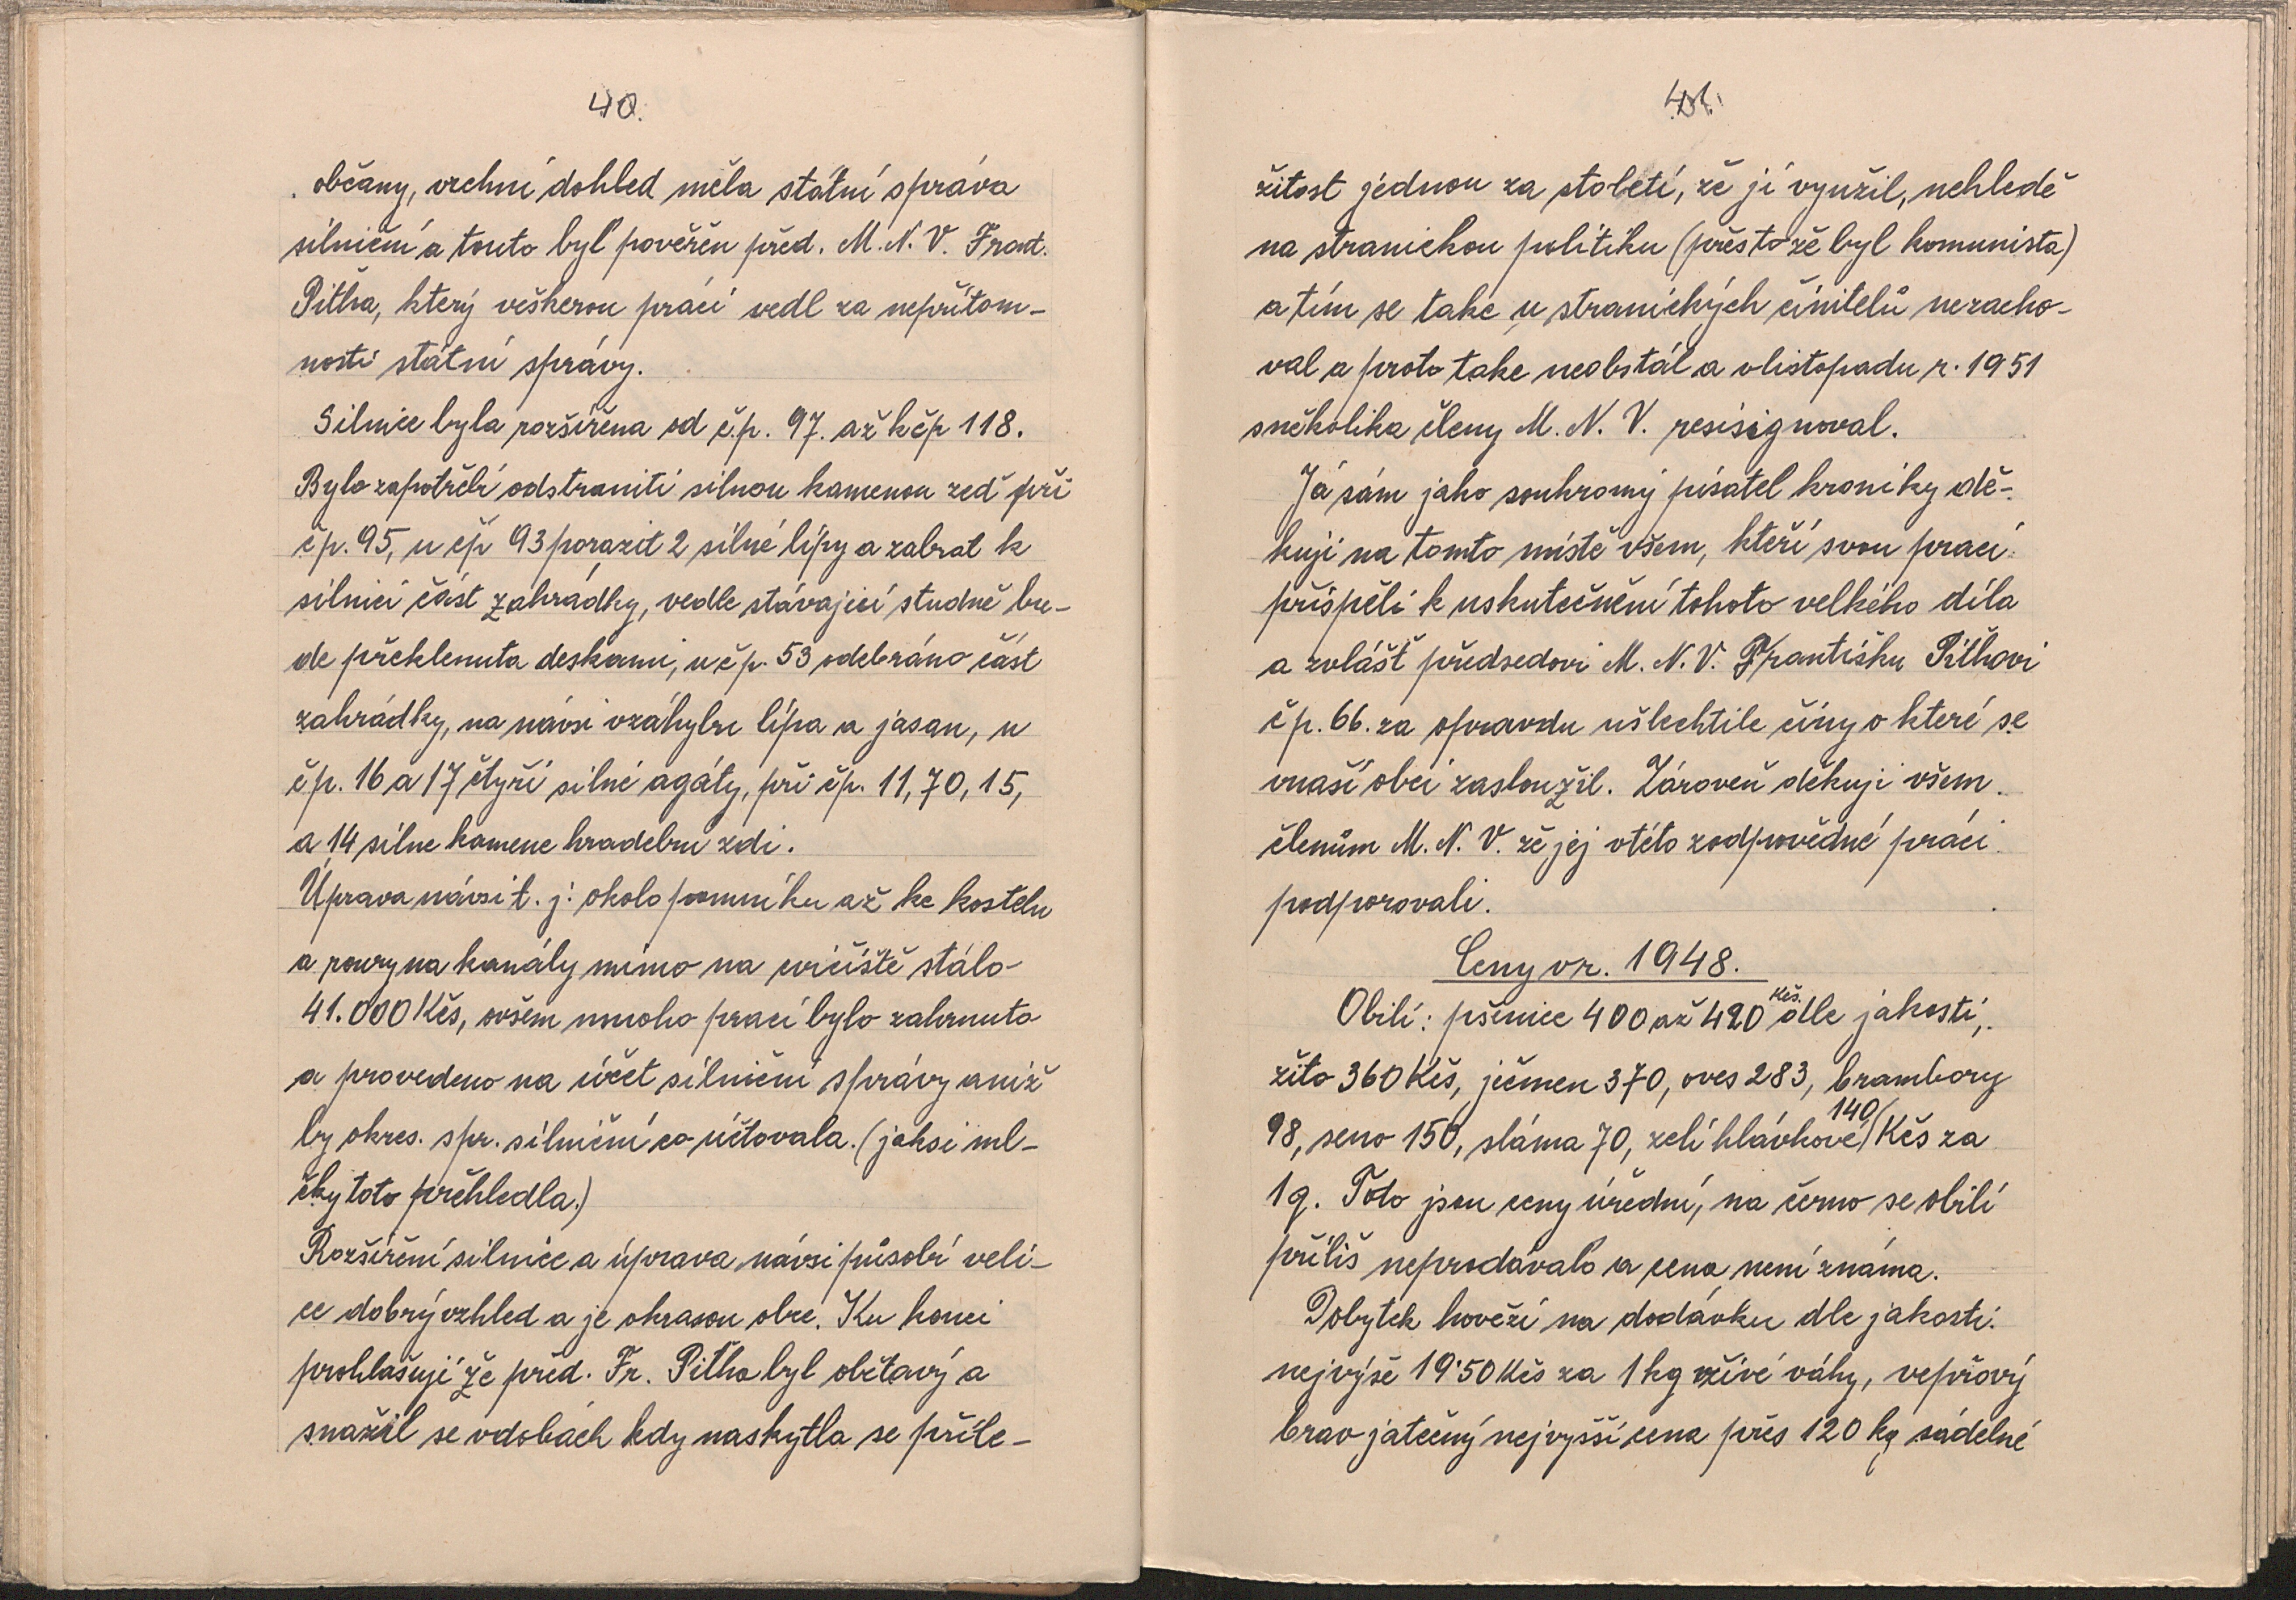 40.
občany, vrchní dohled měla státní správa
silniční a touto byl pověřěn před. M. N. V. Frant.
Pitha, který veškerou práci vedl za nepřítom-
nosti státní správy.
Silnice byla rozšířěna od č.p. 97. až k čp 118.
Bylo zapotřebí odstraniti silnou kamenou zeď při
č p. 95, u čp 93 porazit 2 silné lípy a zabrat k
silnici část zahrádky, vedle stávající studně bu-
de překlenuta deskami, u č p. 53 odebráno část
zahrádky, na návsi vzáhybu lípa a jasan, u
č p. 16 a 17 čtyři silné agáty, při čp. 11, 70, 15,
a 14 silne kamene hradebni zdi.
Úprava návsi t. j. okolo pomníku až ke kostelu
a roury na kanály mimo na cvičiště stálo
41.000 Kčs, ovšem mnoho prací bylo zahrnuto
a provedeno na účet silniční správy aniž
by okres. spr. silniční co účtovala. (jaksi ml-
čky toto přehledla.)
Rozšířění silnice a úprava návsi působí veli-
ce dobrý vzhled a je okrasou obce. Ku konci
prohlašuji že před. Fr. Pitha byl obětavý a
snažil se vdobách kdy naskytla se příle-
41.
žitost jednou za století, že jí využil, nehledě
na stranickou politiku (přesto že byl komunista)
a tím se take u stranických činitelů nezacho-
val a proto take neobstál a vlistopadu r. 1951
sněkolika členy M. N. V. resisignoval.
Já sám jako soukromý pisatel kroniky dě-
kuji na tomto místě všem, kteří svou prací
přispěli k uskutečnění tohoto velkého díla
a zvlášť předsedovi M. N. V. Františku Pithovi
č p. 66. za opravdu ušlechtile činy o které se
vnaší obci zasloužil. Zároveň děkuji všem
členům M. N. V. že jej vtéto zodpovědné práci
podporovali.
Ceny v r. 1948.
Obilí: pšenice 400 až 420 Kčs. dle jakosti,
žito 360 Kčs, ječmen 370, oves 283, brambory
98, seno 150, sláma 70, zelí hlávkové 140 Kčs za
1 q. Toto jsou ceny úřední, na černo se obilí
příliš neprodávalo a cena není známa.
Dobytek hovězí na dodávku dle jakosti:
nejvýše 19'50 Kčs za 1 kg živé váhy, vepřový
brav jatečný nejvyšší cena přes 120 kg sádelné